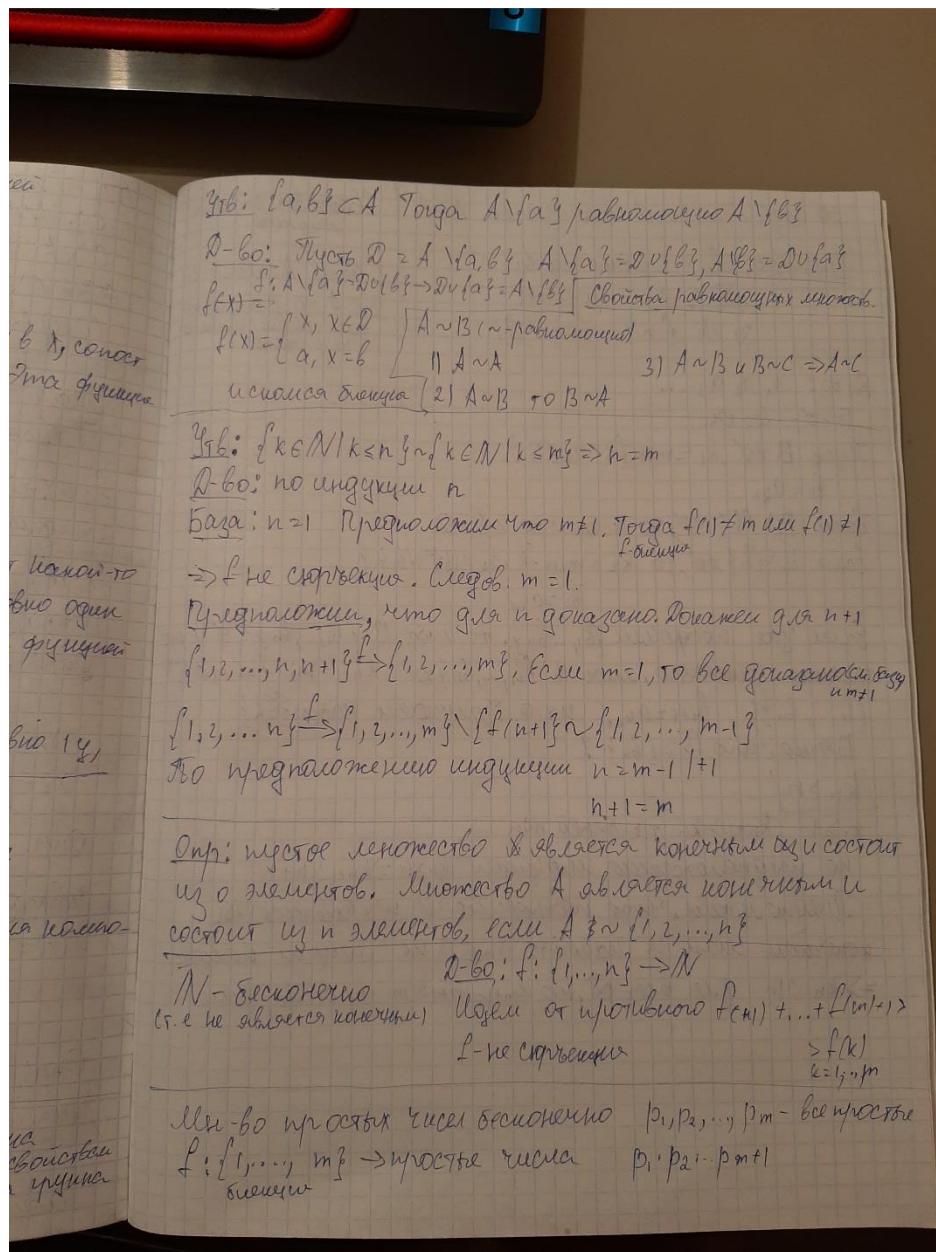 ей
в X, сопост
Эта функция
т какой-то
вно один
функцией
вно 1 y,
ия компо-
на
свойствам
группа
Утв: {a,b} ⊂ A Тогда A\{a} равномощно A\{b}
Д-во: Пусть D = A\{a,b} A\{a}=D∪{b}, A\{b}=D∪{a}
f: A\{a}=D∪{b}→D∪{a}=A\{b} Свойства равномощных множеств.
f(x)=
f(x)={ x, x∈D A~B (~-равномощно)
a, x=b 1) A~A 3) A~B и B~C ⇒A~C
искомая биекция 2) A~B то B~A
Утв: {k∈ℕ|k≤n}~{k∈ℕ|k≤m} ⇒ n=m
Д-во: по индукции n
База: n=1 Предположим что m≠1. Тогда f(1)≠m или f(1)≠1
f-биекция
⇒ f не сюръекция. Следов. m=1.
Предположим, что для n доказано. Докажем для n+1
{1,2,...,n,n+1} f→ {1,2,...,m}. Если m=1, то все доказано (см. базу
и m≠1
{1,2,...n} f→ {1,2,...,m}\{f(n+1)}~{1,2,...,m-1}
По предположению индукции n=m-1 |+1
n+1=m
Опр: пустое множество является конечным и состоит
из 0 элементов. Множество A является конечным и
состоит из n элементов, если A ~ {1,2,...,n}
ℕ-бесконечно Д-во: f: {1,...,n} →ℕ
(т.е не является конечным) Идем от противного f(1)+...+f(n)+1>
f-не сюръекция >f(k)
k=1,..,n
Мн-во простых чисел бесконечно p₁,p₂,...,pm - все простые
f:{1,...,m} →простые числа p₁·p₂...pm+1
биекция